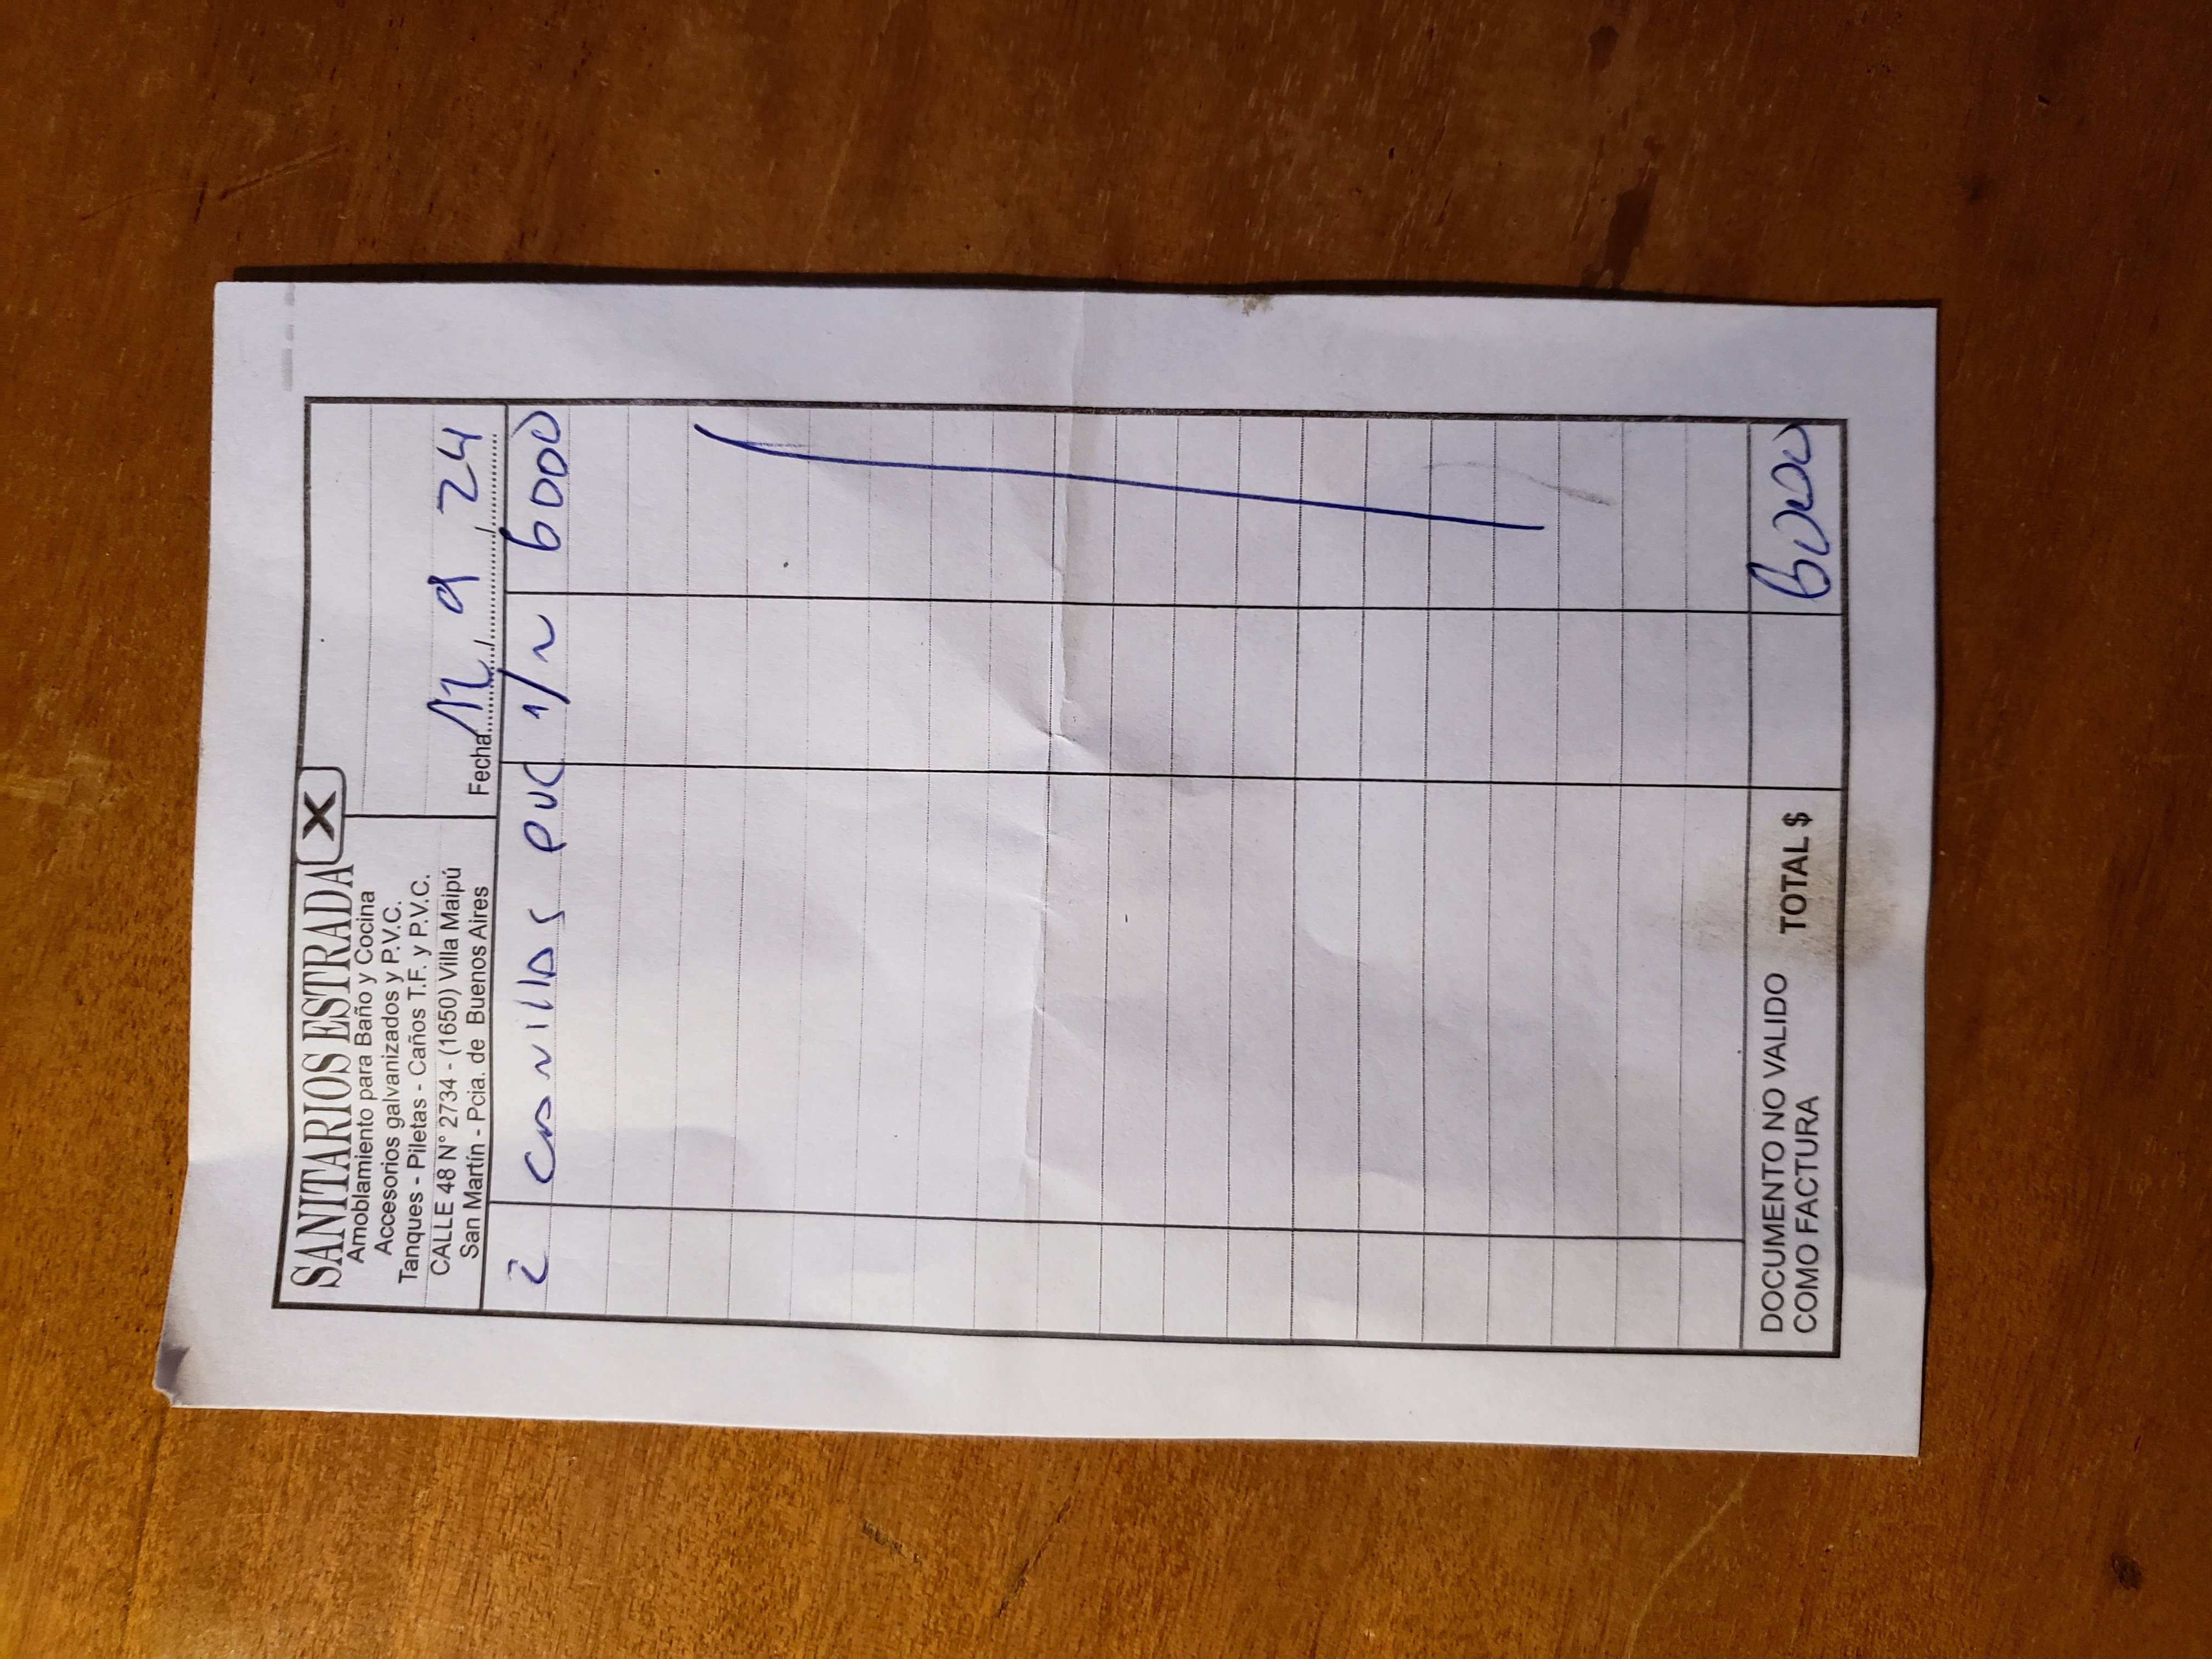 SANITARIOS ESTRADA X
Amoblamiento para Baño y Cocina
Accesorios galvanizados y P.V.C.
Tanques - Piletas - Caños T.F. y P.V.C.
CALLE 48 N° 2734 - (1650) Villa Maipú
San Martín - Pcia. de Buenos Aires
Fecha 12 / 9 / 24
2 canillas PVC 1/2 6000
DOCUMENTO NO VALIDO
COMO FACTURA
TOTAL $ 6000